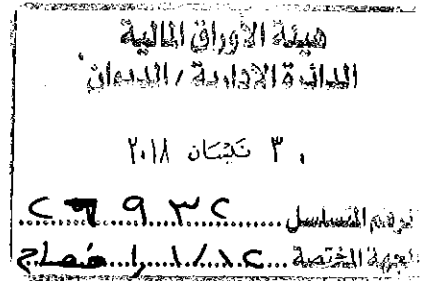 هيئة الأوراق المالية
الدائرة الإدارية / الديوان
٣٠ نيسان ٢٠١٨
الرقم المتسلسل ٢٦٩٣٢
الجهة المختصة ١٢/١/ الإفصاح